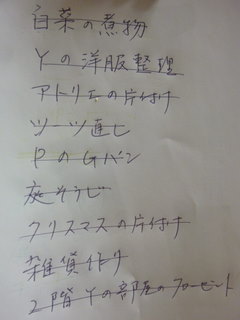 白菜の煮物
Yの洋服整理
アトリエの片付け
ツーツ直し
PのGパン
庭そうじ
クリスマスの片付け
雑貨作り
2階Yの部屋のクローゼット